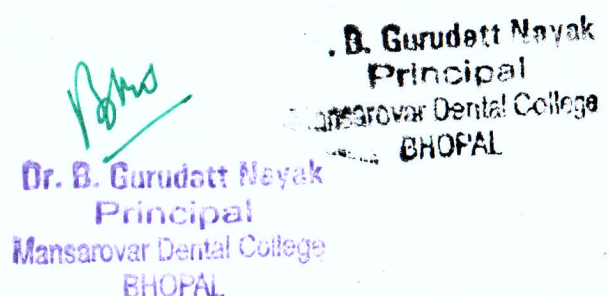 . B. Gurudatt Nayak
Principal
Mansarovar Dental College
BHOPAL
Dr. B. Gurudatt Nayak
Principal
Mansarovar Dental College
BHOPAL